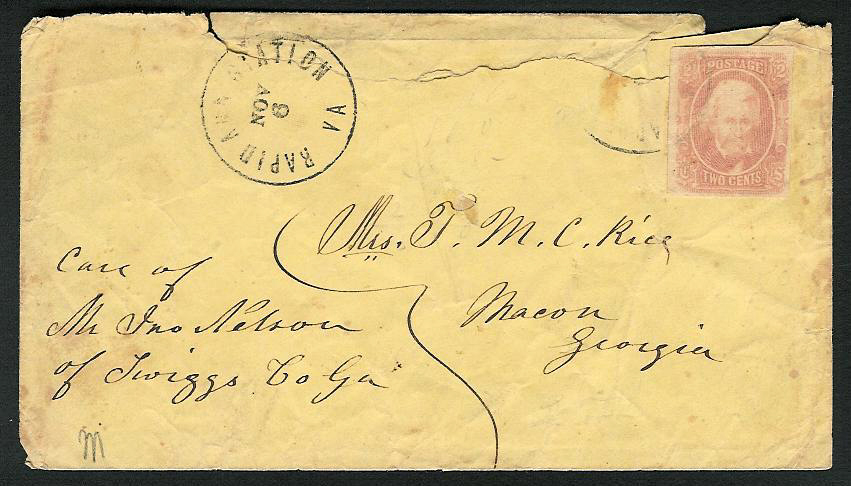 RAPID ANN STATION VA
NOV
9
2 POSTAGE 2
TWO CENTS
Mrs. T. M. C. Rice
Macon
Georgia
Care of
Mr Jno Nelson
of Twiggs Co Ga
M